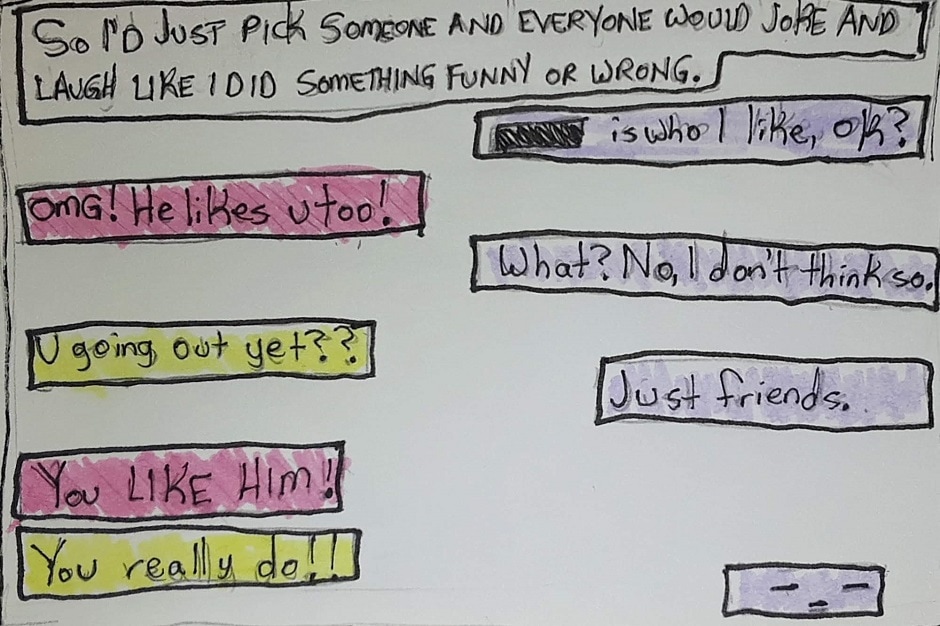 SO I'D JUST PICK SOMEONE AND EVERYONE WOULD JOKE AND
LAUGH LIKE I DID SOMETHING FUNNY OR WRONG.
is who I like, ok?
OMG! He likes u too!
What? No, I don't think so.
U going out yet??
Just friends.
You LIKE HIM!
You really do!!
-_-